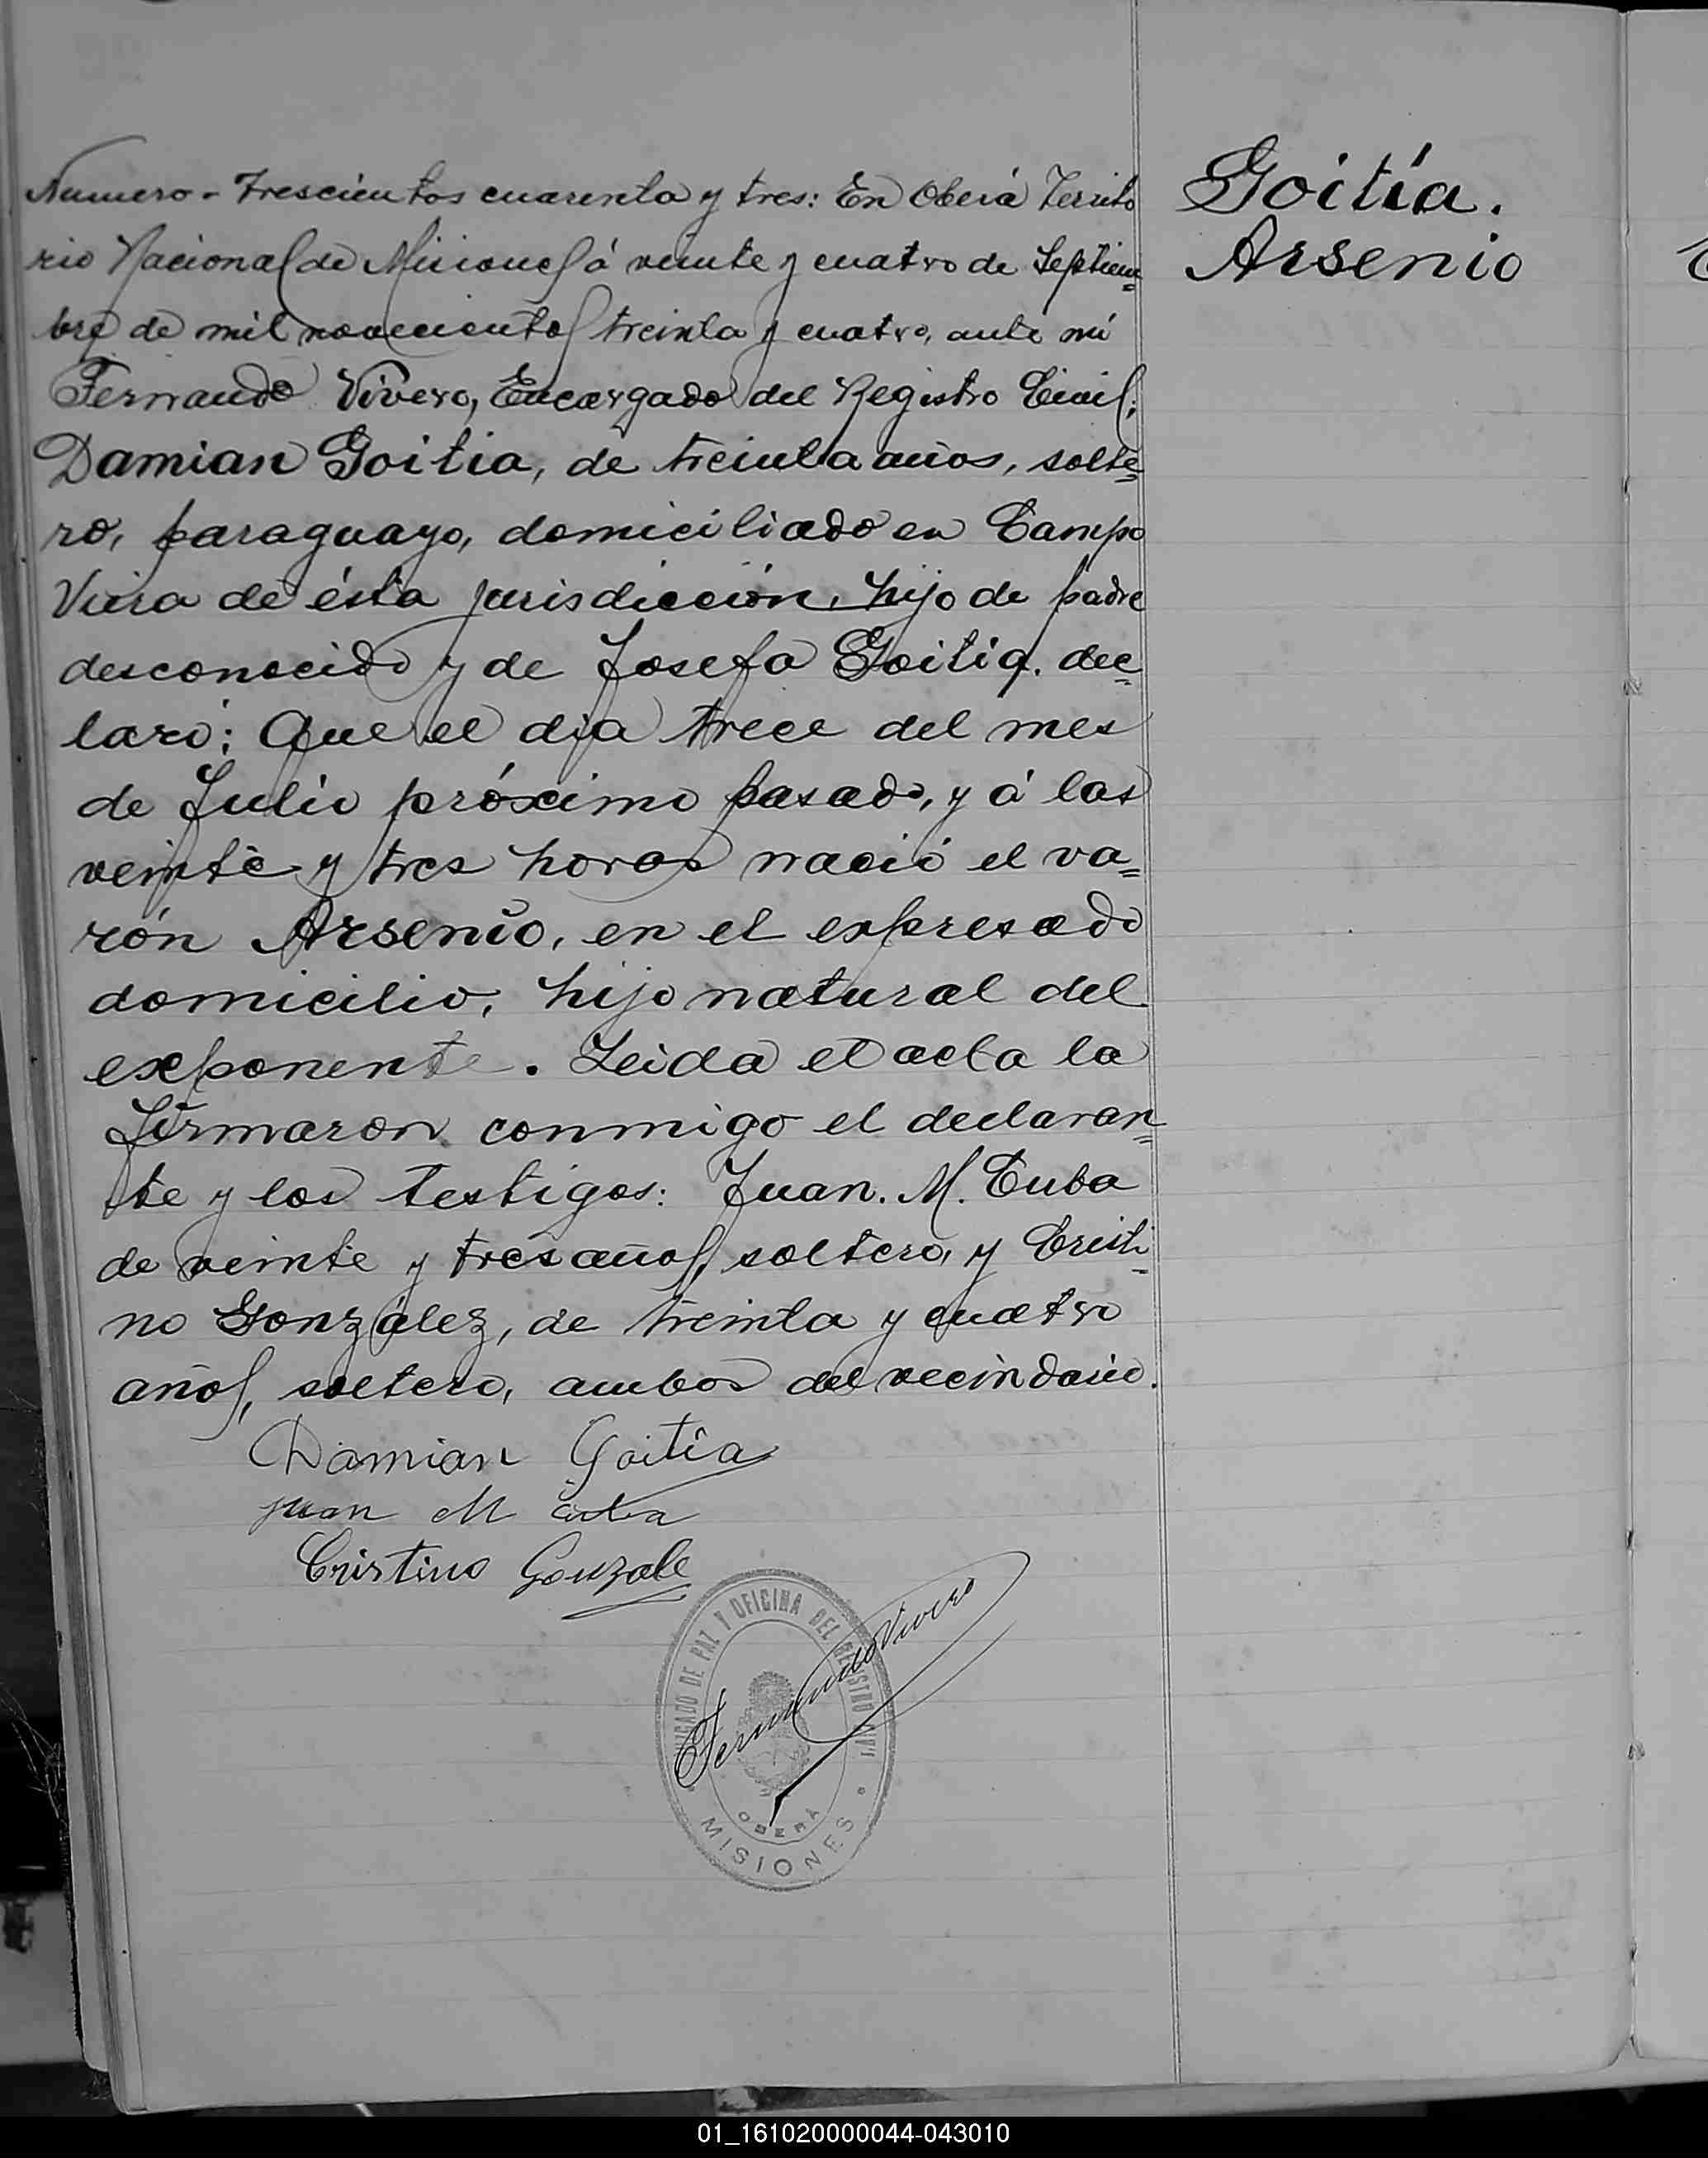 Numero - Trescientos cuarenta y tres: En Oberá Territo
rio Nacional de Misiones á veinte y cuatro de Septiem=
bre de mil novecientos treinta y cuatro, ante mí
Fernando Vivero, Encargado del Registro Civil;
Damian Goitia, de treinta años, solte=
ro, paraguayo, domiciliado en Campo
Viera de ésta jurisdicción, hijo de padre
desconocido y de Josefa Goitia. dec=
laró: Que el dia trece del mes
de Julio próximo pasado, y á las
veinte y tres horas nació el va=
rón Arsenio, en el expresado
domicilio, hijo natural del
exponente. Leida el acta la
firmaron conmigo el declaran=
te y los testigos: Juan. M. Cuba
de veinte y tres años, soltero, y Cristi=
no González, de treinta y cuatro
años, soltero, ambos del vecindario.
Goitía.
Arsenio
Damian Goitia
Juan M Cuba
Cristino Gonzale
Fernando Vivero
JUZGADO DE PAZ Y OFICINA DEL REGISTRO CIVIL
OBERÁ
MISIONES
01_161020000044-043010